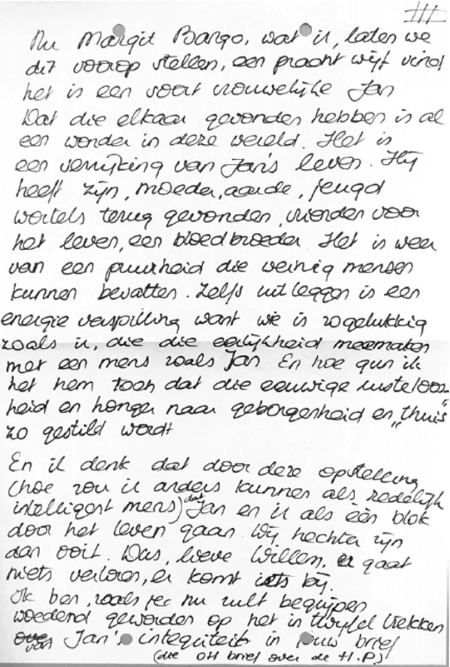 III
Nu Margit Bango, wat ik, laten we
dit voorop stellen, een pracht wijf vind
het is een soort vrouwelijke Jan
Dat die elkaar gevonden hebben is al
een wonder in deze wereld. Het is
een verrijking van Jan's leven. Hij
heeft zijn, moeder, aarde, jeugd
wortels terug gevonden, vrienden voor
het leven, een bloedbroeder. Het is weer
van een puurheid die weinig mensen
kunnen bevatten. Zelfs uitleggen is een
energie verspilling want wie is zo gelukkig
zoals ik, die die eerlijkheid meemaken
met een mens zoals Jan. En hoe gun ik
het hem toch dat die eeuwige rusteloos-
heid en honger naar geborgenheid en „thuis"
zo gestild wordt
En ik denk dat door deze opstelling
(hoe zou ik anders kunnen als redelijk
intelligent mens) dat Jan en ik als één blok
door het leven gaan. Wij hechter zijn
dan ooit. Dus, lieve Willem, er gaat
niets verloren, er komt iets bij.
Ik ben, zoals je nu zult begrijpen
woedend geworden op het in twijfel trekken
van Jan's integriteit in jouw brief
(die OH brief over de H.P)